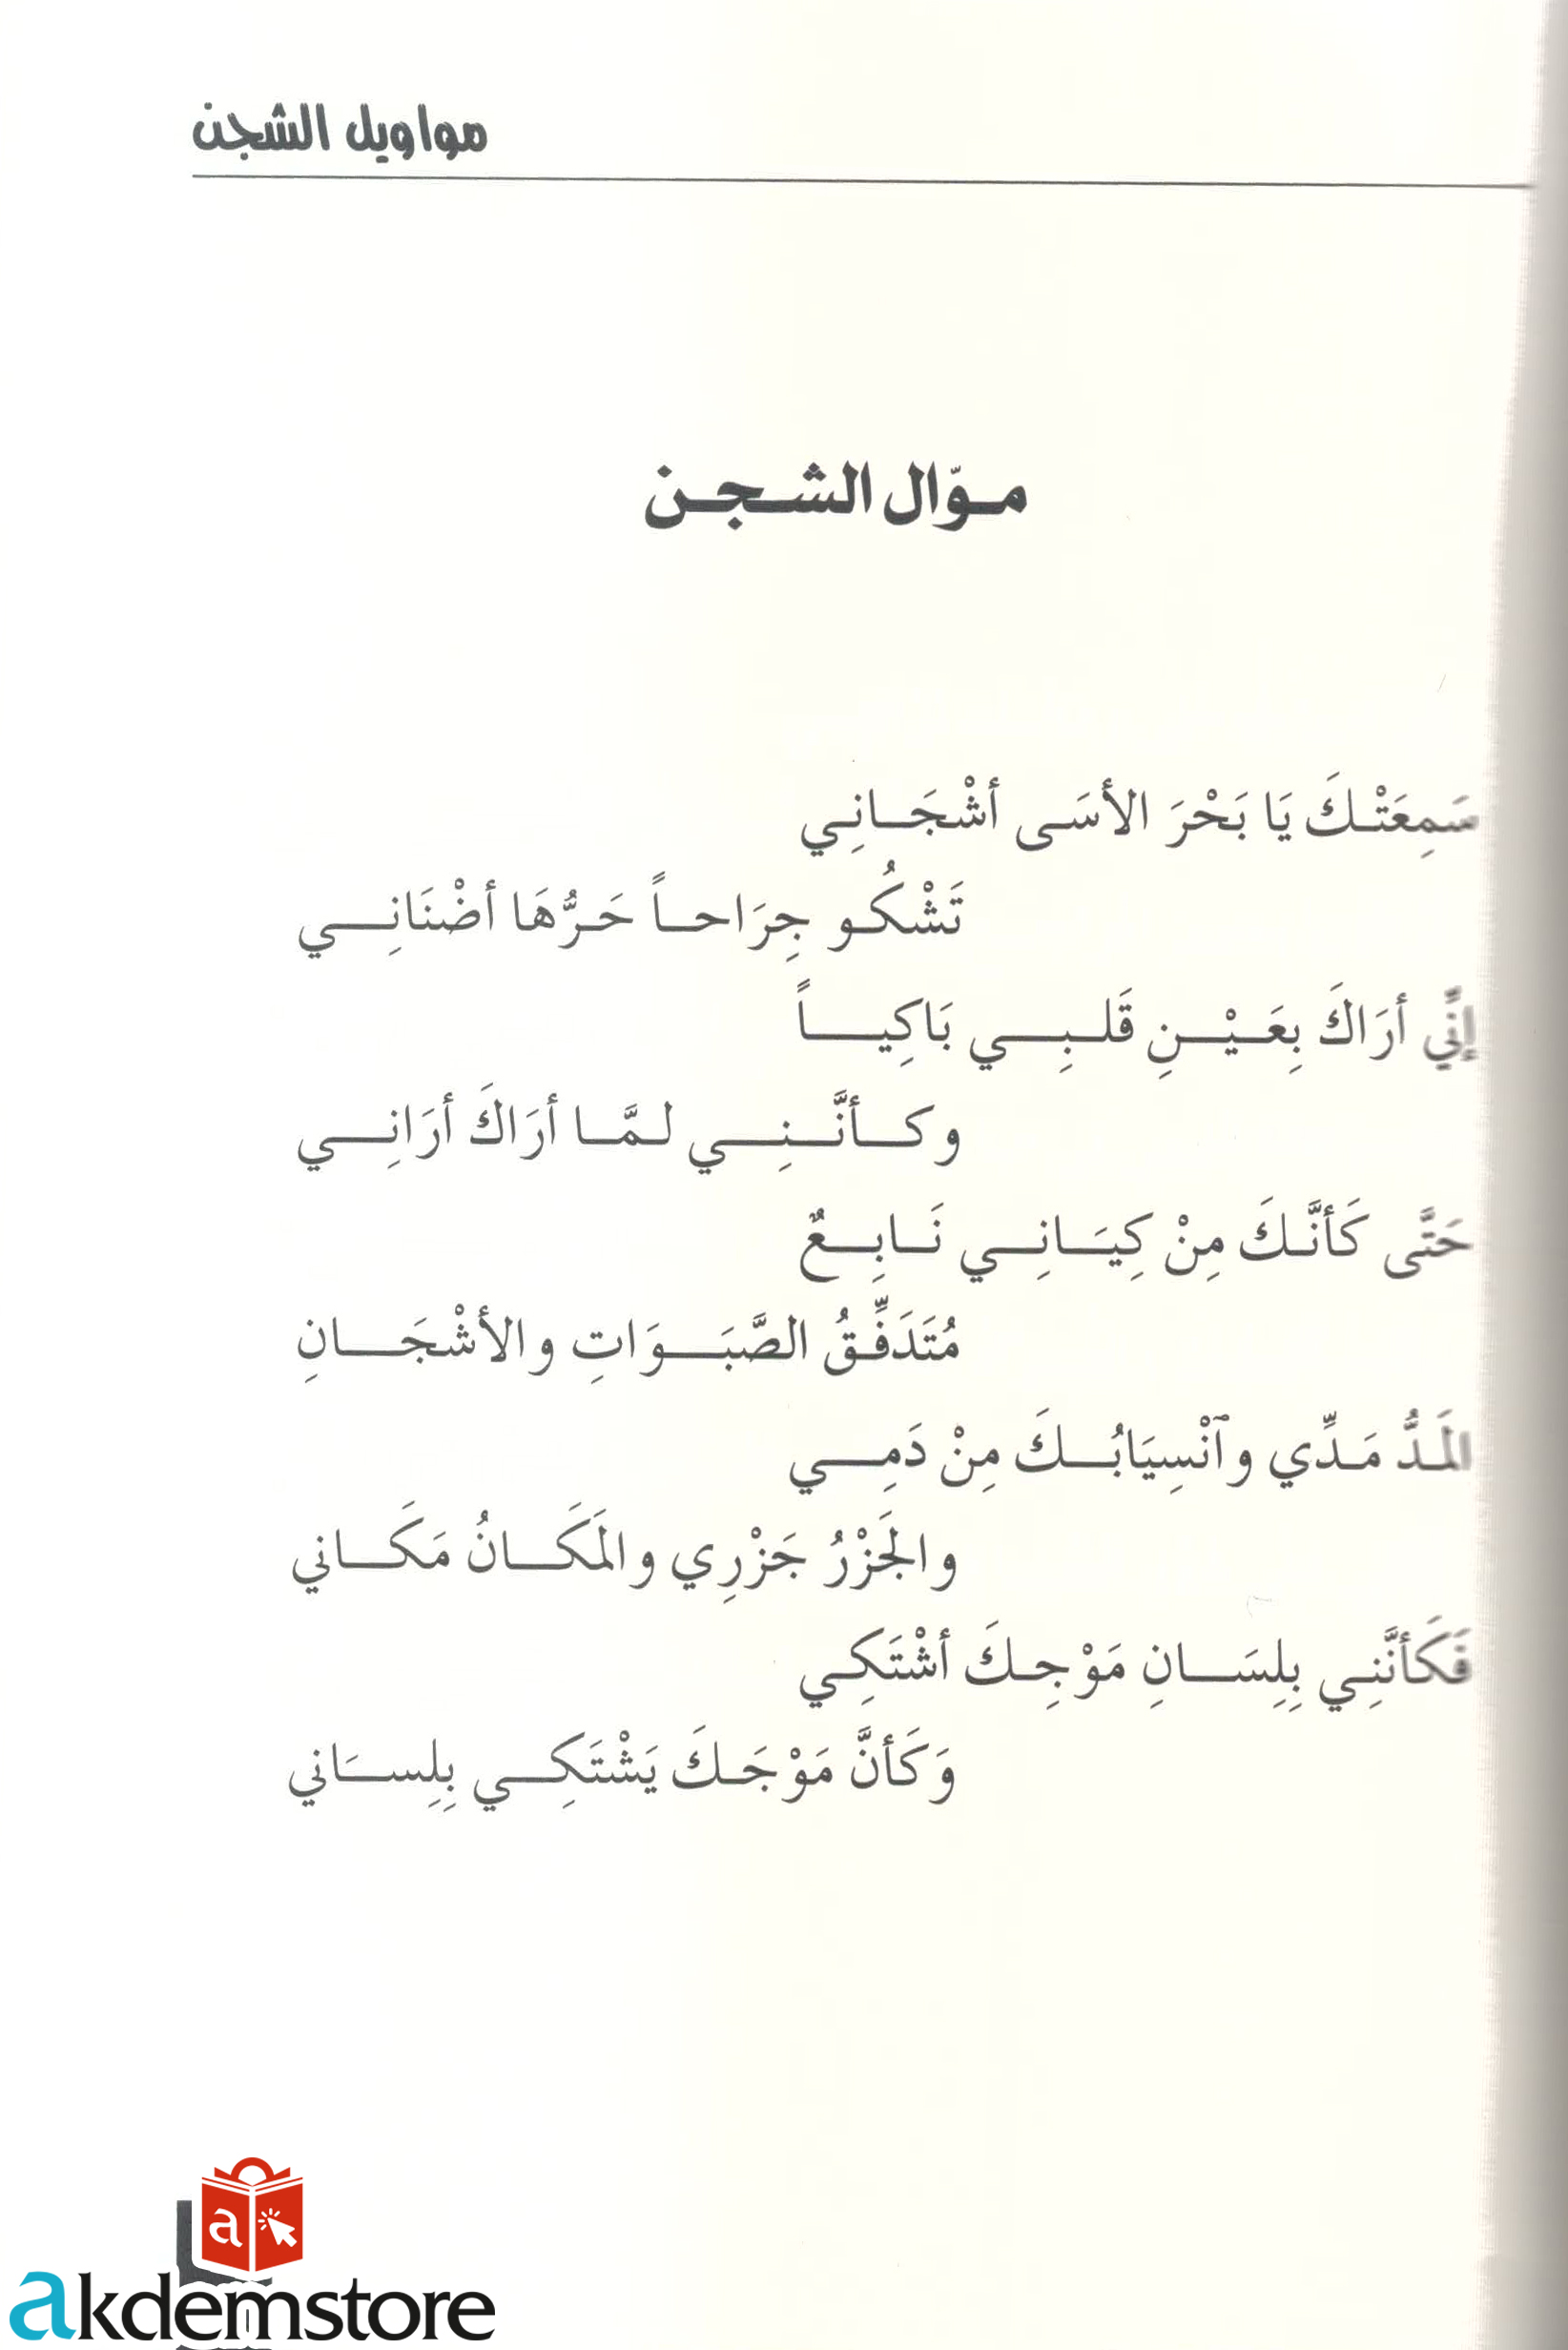 مواويل الشجن
موّال الشجن
سَمِعَتْكَ يَا بَحْرَ الأسَى أشْجَانِي
تَشْكُو جِرَاحاً حَرُّهَا أضْنَانِي
إنِّي أرَاكَ بِعَيْنِ قَلبِي بَاكِياً
وكأنَّنِي لمَّا أرَاكَ أرَانِي
حَتَّى كَأنَّكَ مِنْ كِيَانِي نَابِعٌ
مُتَدَفِّقُ الصَّبَوَاتِ والأشْجَانِ
المَدُّ مَدِّي وٱنْسِيَابُكَ مِنْ دَمِي
والجَزْرُ جَزْرِي والمَكَانُ مَكَاني
فَكَأنَّنِي بِلِسَانِ مَوْجِكَ أشْتَكِي
وَكَأنَّ مَوْجَكَ يَشْتَكِي بِلِسَاني
a
akdemstore